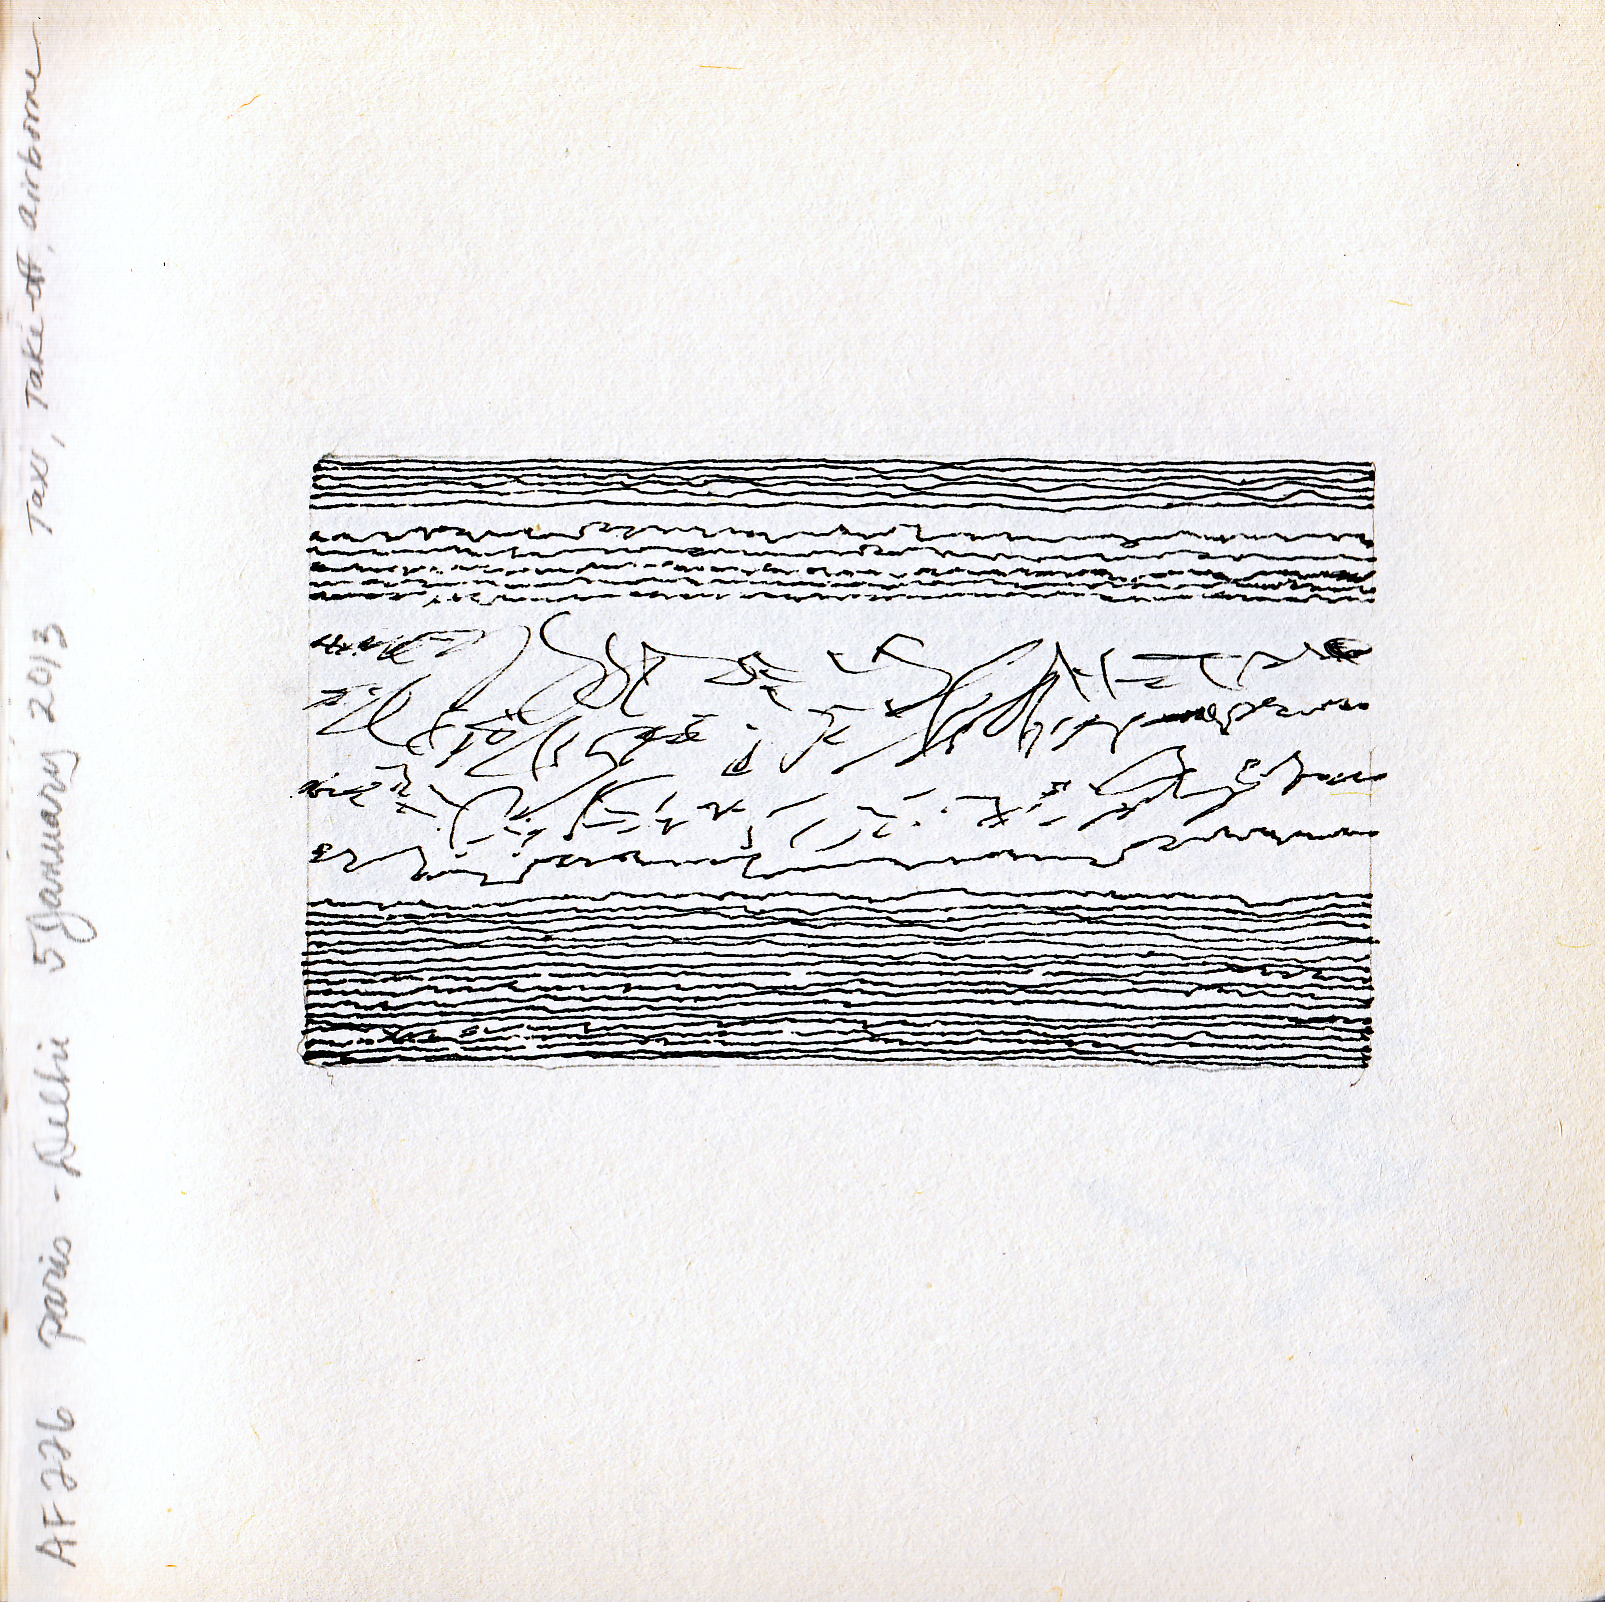 AF 226 Paris - Delhi 5 January 2013 Taxi, Take-off, airborne